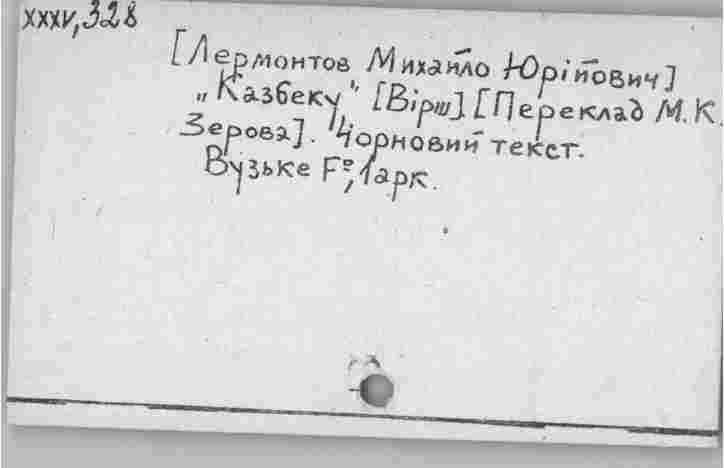 XXXV, 328
[Лермонтов Михайло Юрійович]
„Казбеку" [Вірш] [Переклад М.К.
Зерова]. Чорновий текст.
Вузьке F°, 1 арк.